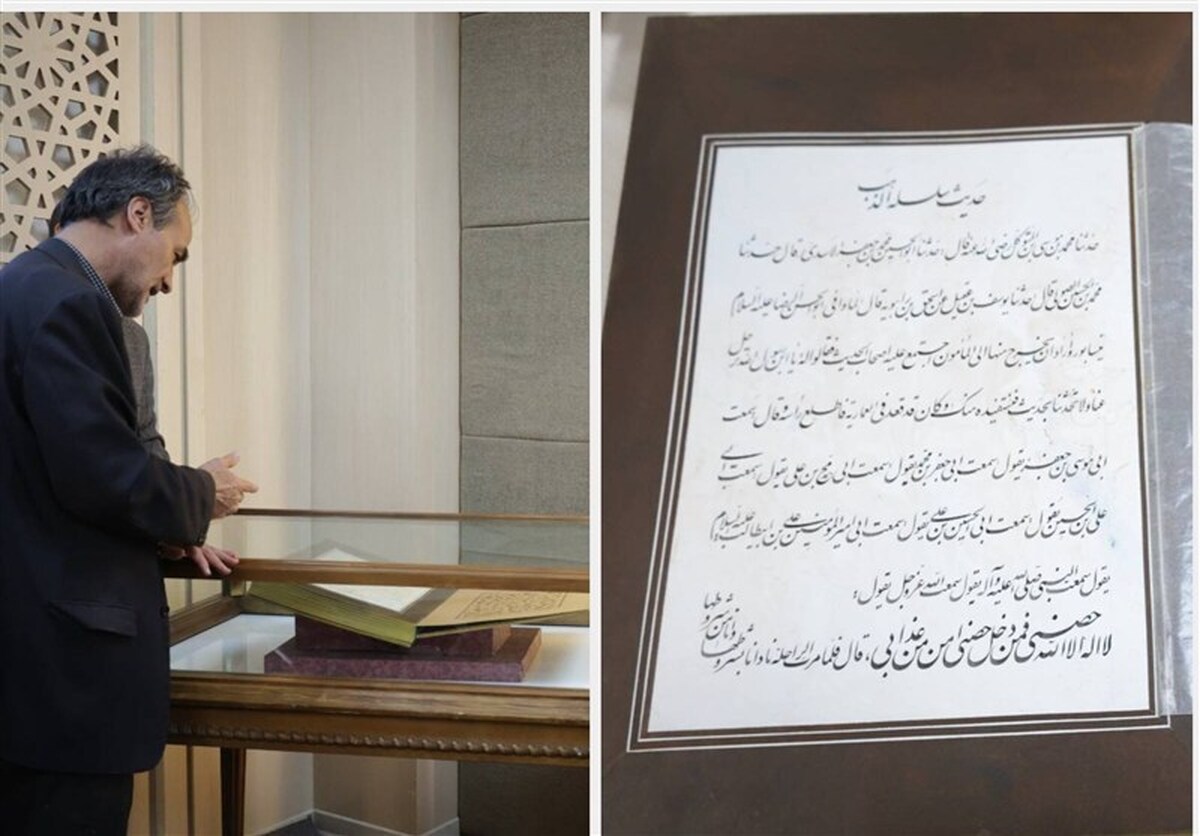 حدیث سلسله الذهب
حدثنا محمد بن موسی بن المتوکل رضی الله عنه قال: حدثنا ابوالحسین محمد بن جعفر الاسدی قال حدثنا
محمد بن الحسین الصولی قال حدثنا یوسف بن عقیل عن اسحق بن راهویه قال لما وافی ابوالحسن الرضا علیه السلام
نیسابور و اراد ان یخرج منها الی المأمون اجتمع علیه اصحاب الحدیث فقالوا له یا ابن رسول الله ترحل
عنا ولا تحدثنا بحدیث فنستفیده منک و کان قد قعد فی العماریة فاطلع راسه و قال سمعت
ابی موسی بن جعفر یقول سمعت ابی جعفر بن محمد یقول سمعت ابی محمد بن علی یقول سمعت ابی
علی بن الحسین یقول سمعت ابی الحسین بن علی یقول سمعت ابی امیر المومنین علی بن ابیطالب علیه السلام
یقول سمعت النبی صلی الله علیه و آله یقول سمعت الله عز و جل یقول:
لا اله الا الله حصنی فمن دخل حصنی امن من عذابی، قال فلما مرت الراحلة نادانا بشروطها
و انا من شروطها